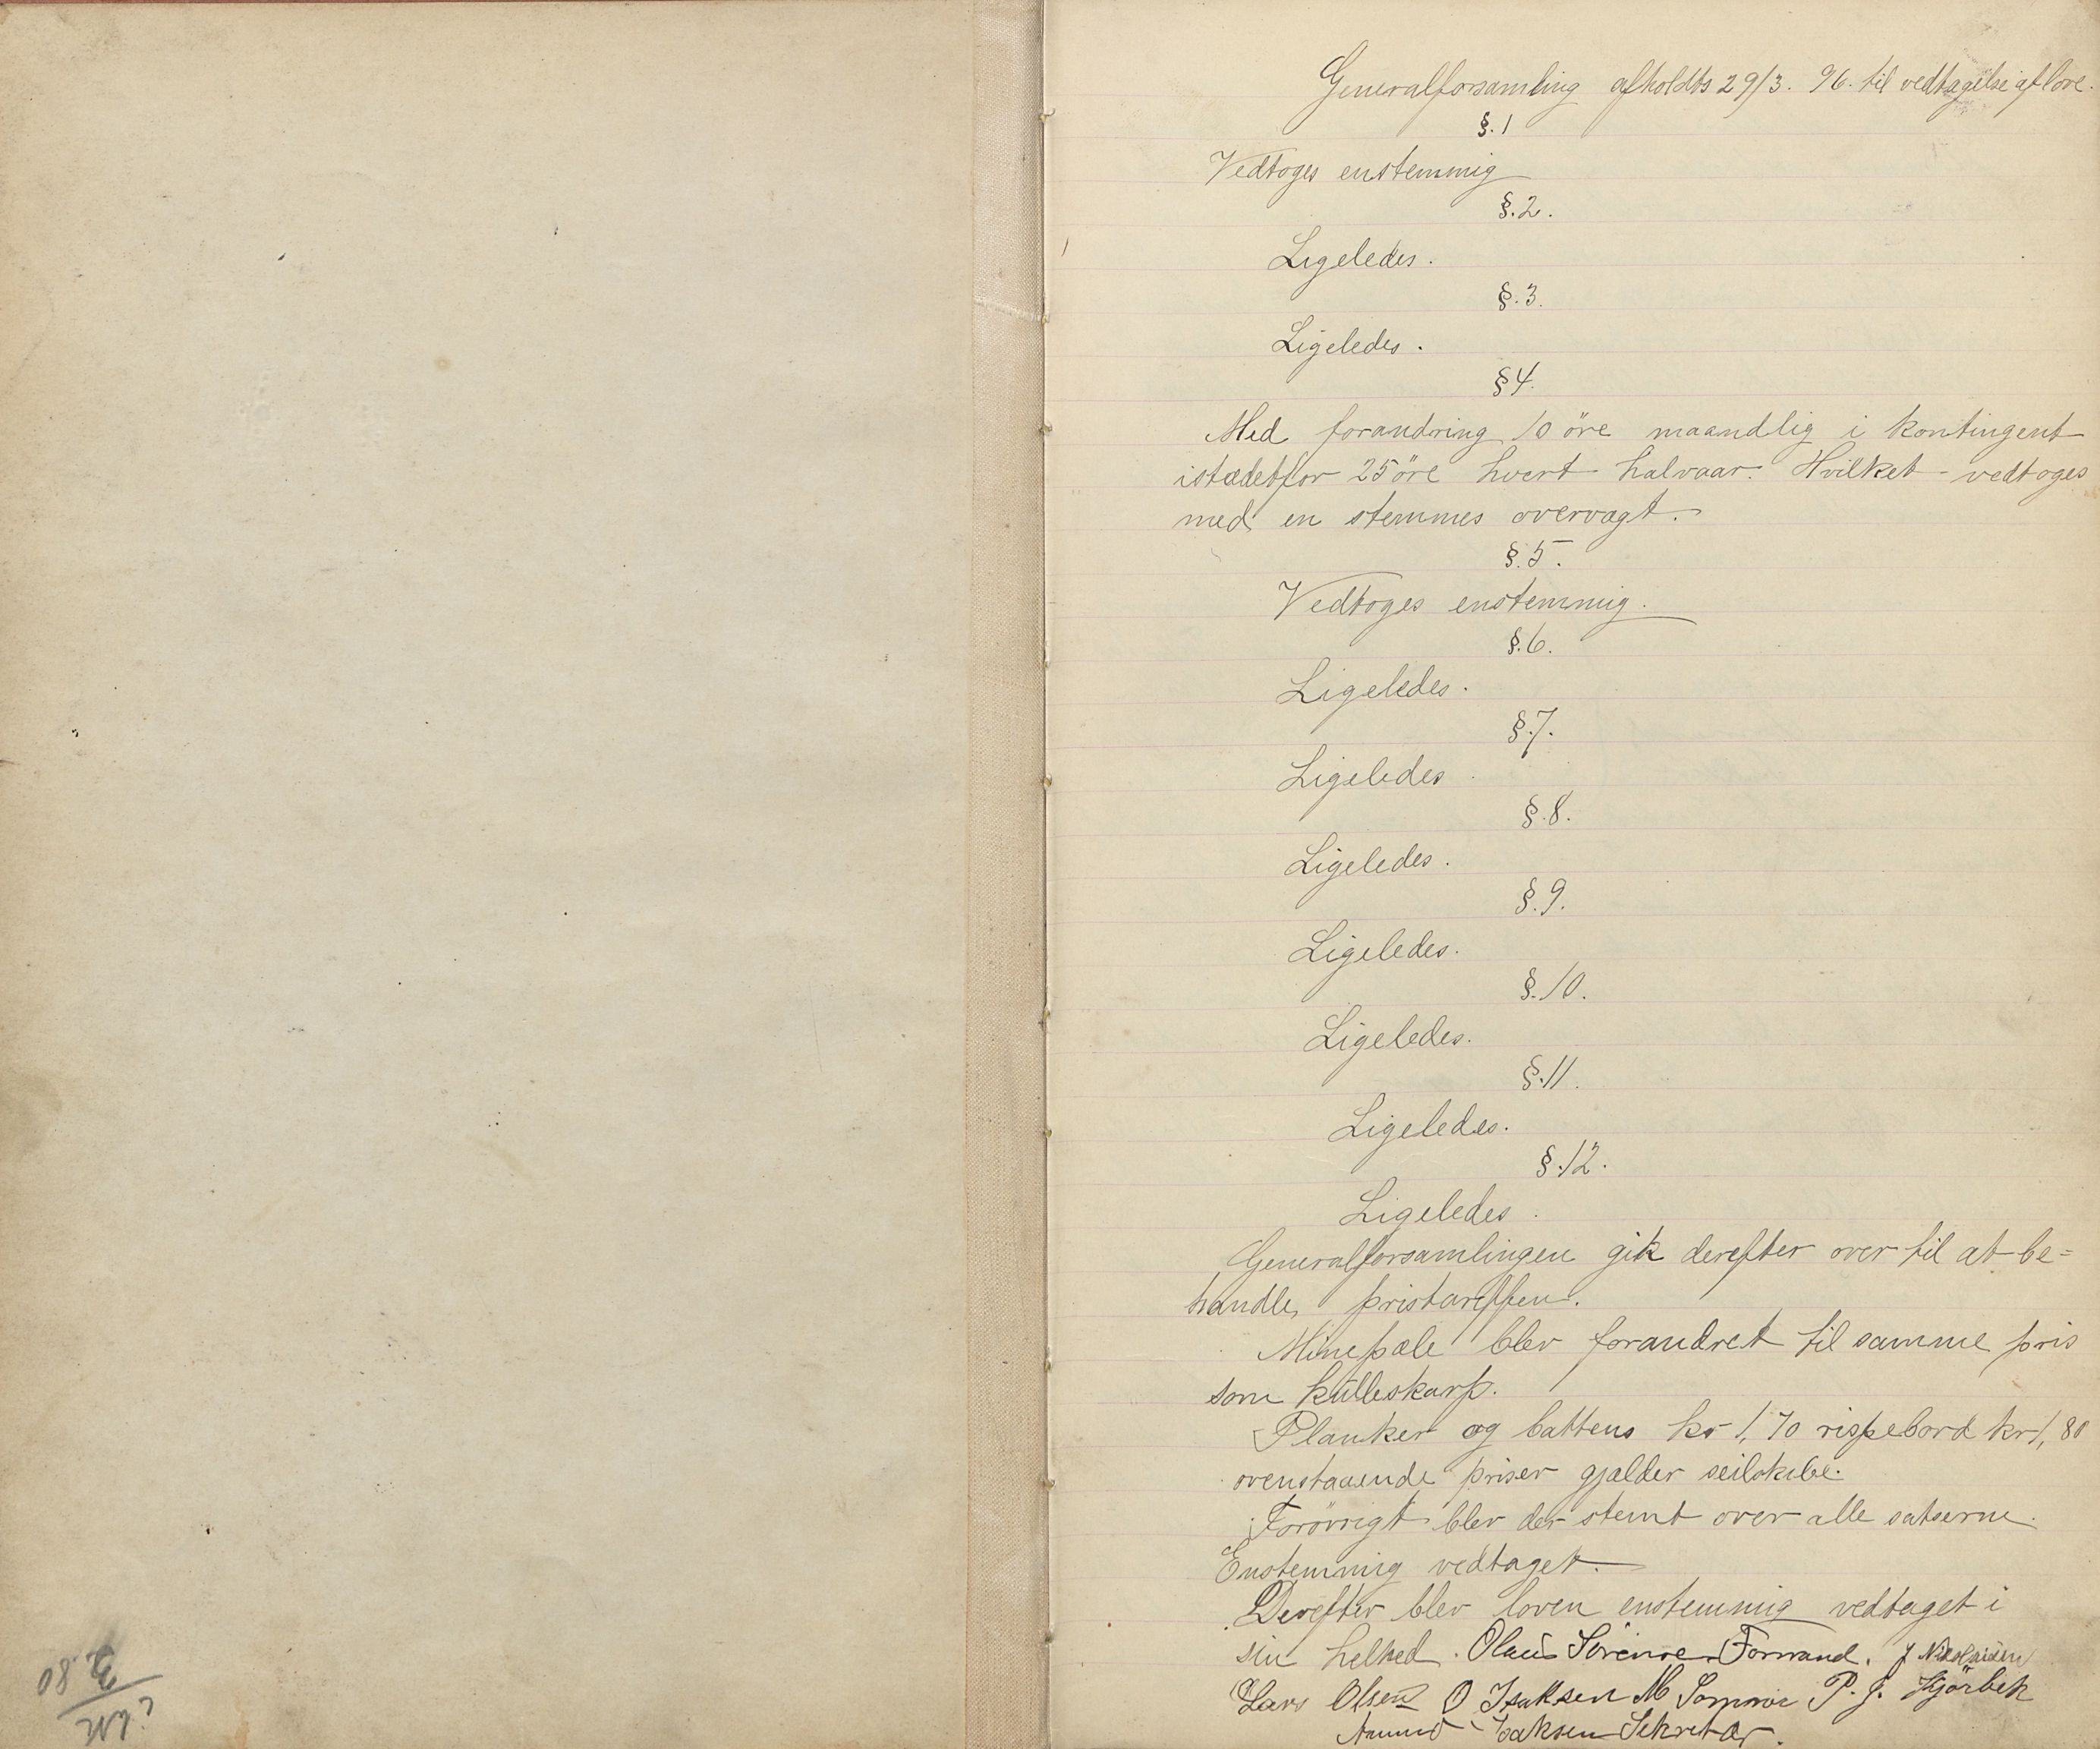 Generalforsamling afholdts 29/3. 96. til vedtagelse af love.
§.1
Vedtoges enstemmig
§.2.
Ligeledes.
§.3.
Ligeledes.
§4.
Med forandring 10 öre maandlig i kontingent
istædetfor 25 öre hvert halvaar. Hvilket vedtoges
med en stemmes overvægt.
§.5.
Vedtoges enstemmig.
§.6.
Ligeledes.
§.7.
Ligeledes.
§.8.
Ligeledes.
§.9.
Ligeledes.
§.10.
Ligeledes.
§.11.
Ligeledes.
§.12.
Ligeledes.
Generalforsamlingen gik derefter over til at be=
handle pristariffen.
Minepæle blev forandret til samme pris
som kulleskarp.
Planker og battens kr 1,70 rispebord kr 1,80
ovenstaaende priser gjælder seilskibe.
Forövrigt blev der stemt over alle satserne.
Enstemmig vedtaget.
Derefter blev loven enstemmig vedtaget i
sin helhed. Olaus Formand. J Nikolaisen
Lars Olsen O Isaksen M P. J.
Isaksen Sekretær.
80